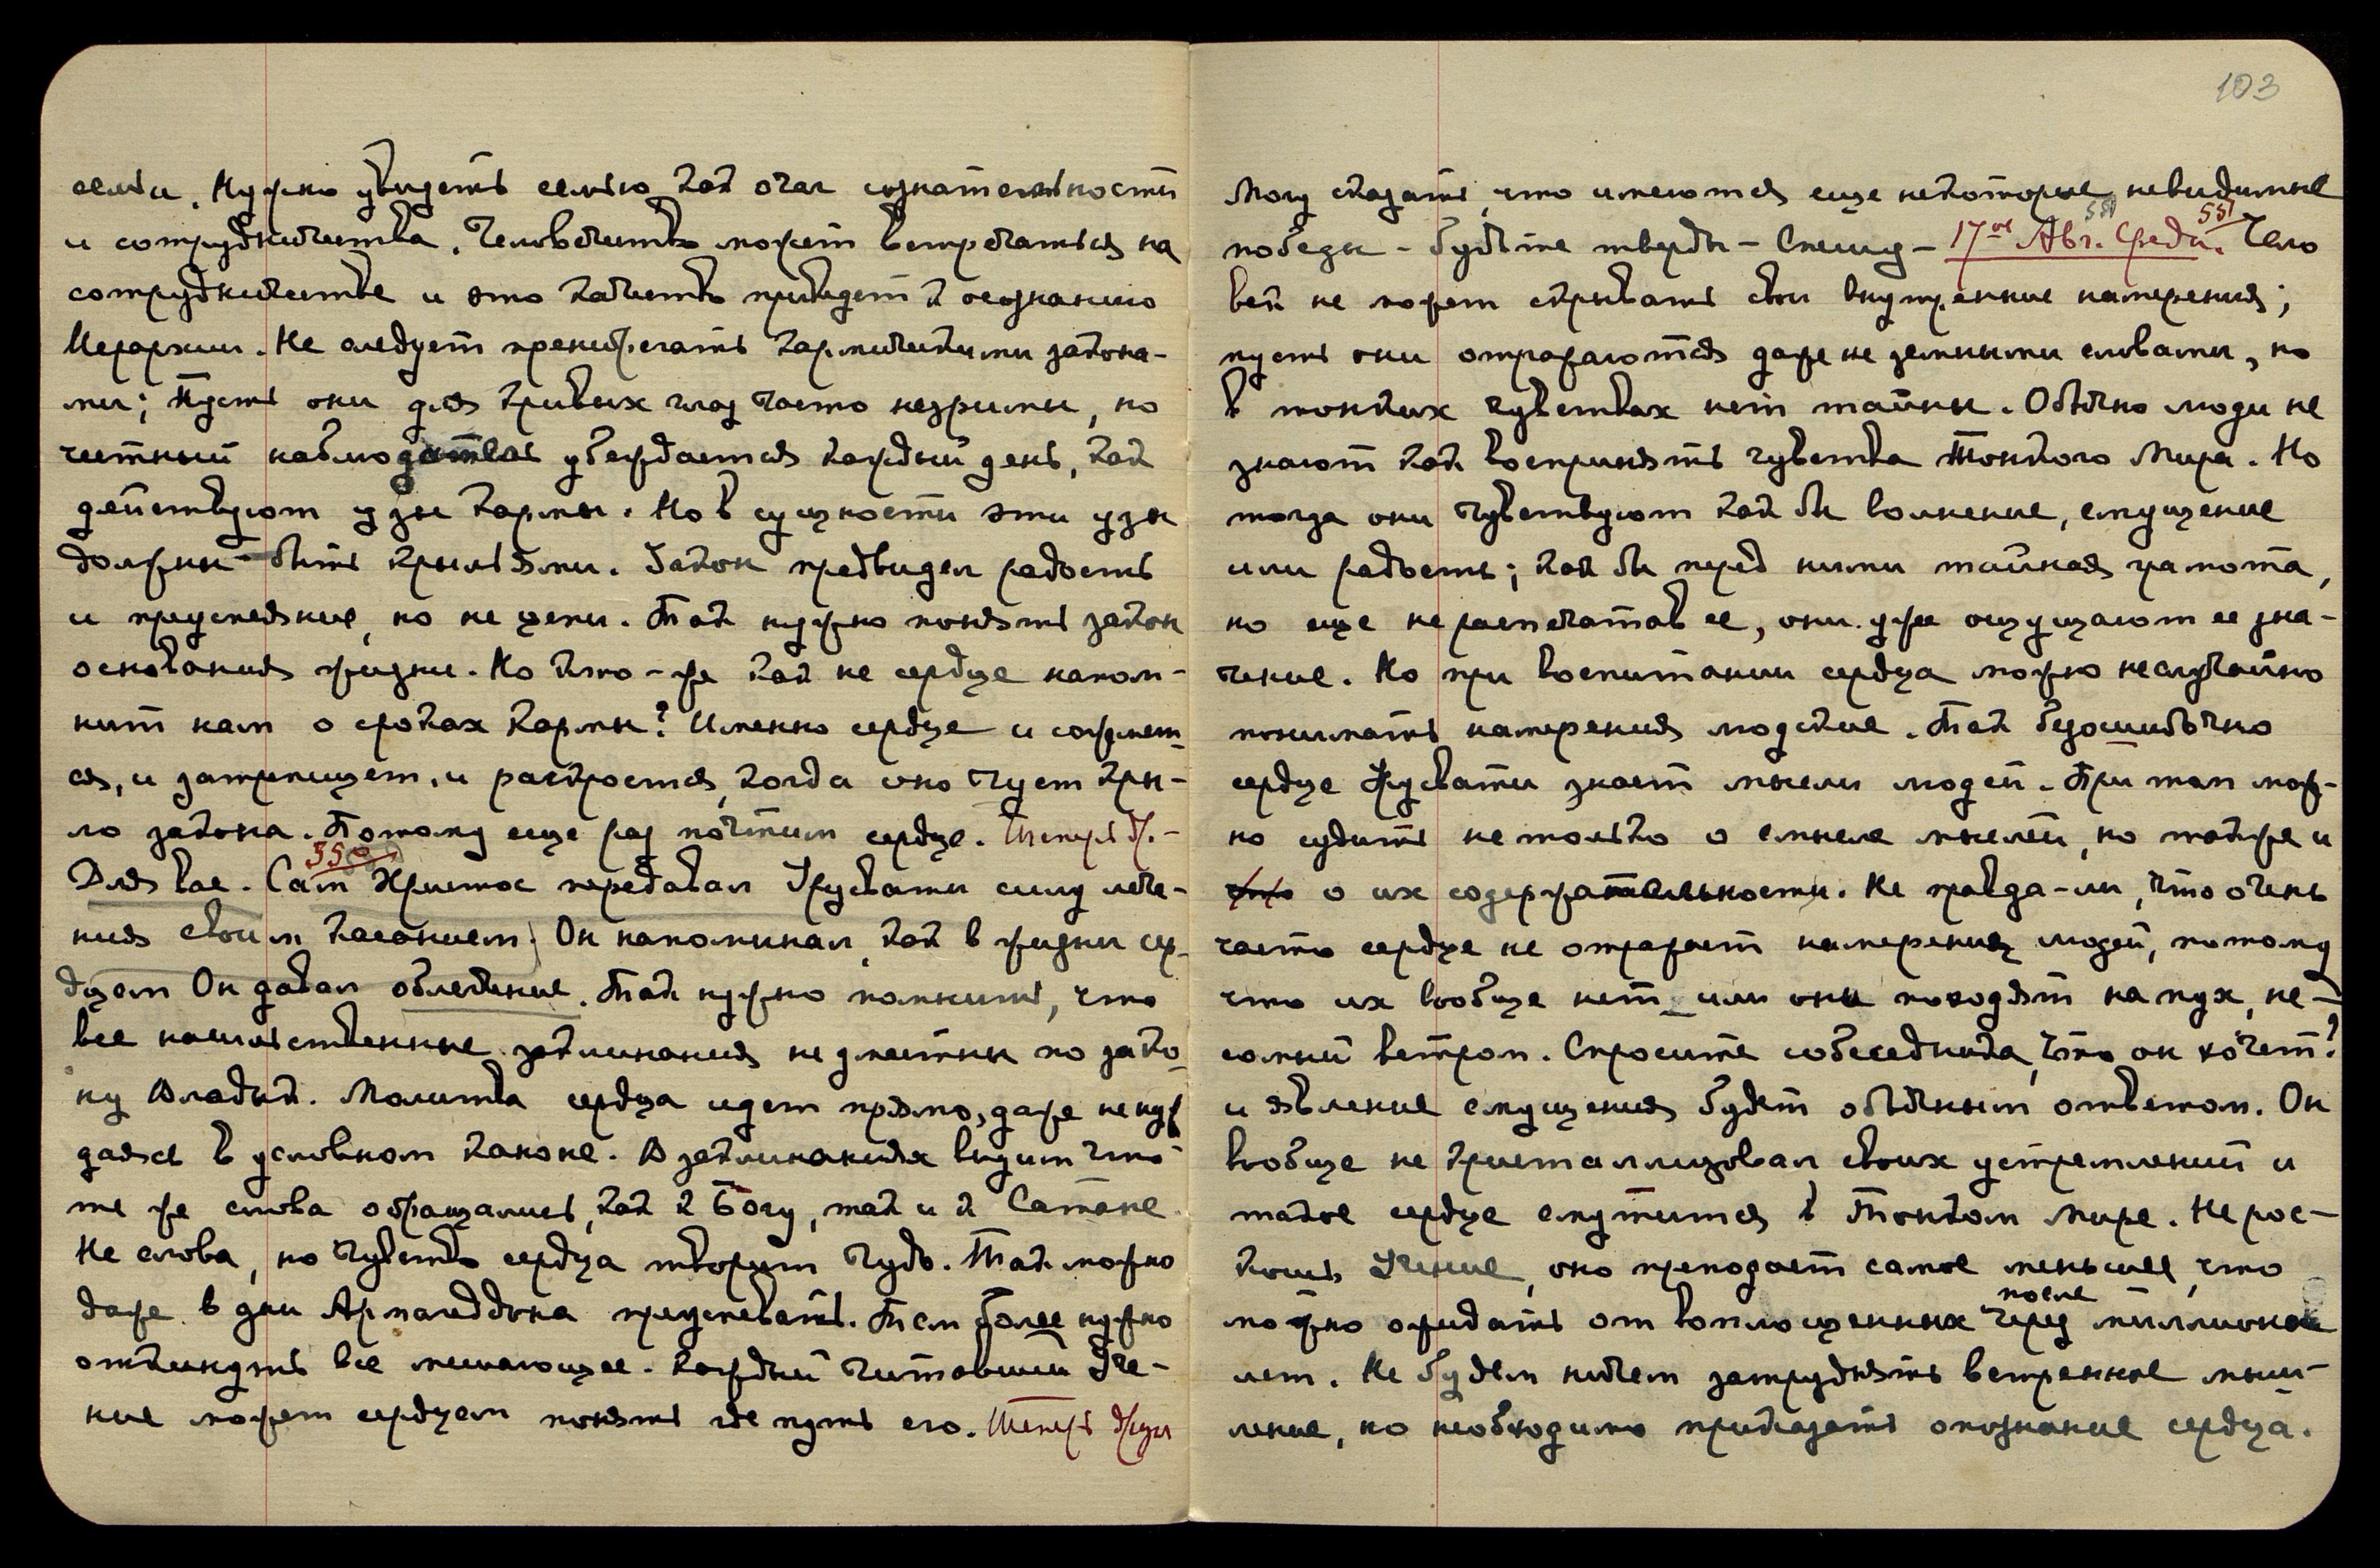 семьи. Нужно увидеть семью, как очаг сознательности
и сотрудничества. Человечество может встречаться на
сотрудничестве и это качество приведет к осознанию
Иерархии. Не следует пренебрегать кармическими закона-
ми; Пусть они для кривых глаз часто незримы, но
честный наблюдатель убеждается каждый день, как
действуют узы кармы. Но в сущности эти узы
должны быть крыльями. Закон предвидел радость
и преуспеяние, но не цепи. Так нужно понять закон
основания жизни. Но кто-же как не сердце напом-
нит нам о сроках кармы? Именно сердце и сожмет-
ся, и затрепещет, и раскроется, когда оно чует кры-
ло закона. Потому еще раз почтим сердце. Теперь др.-
550
Для вас. Сам Христос передавал Урусвати силу лече-
ния своим касанием; Он напоминал, как в жизни сер-
дцем Он давал облегчение. Так нужно помнить, что
все насильственные заклинания не уместны по зако-
ну Владык. Молитва сердца идет прямо, даже не нуж
даясь в условном каноне. В заклинаниях видим что
те же слова обращались, как к Богу, так и к Сатане.
Не слова, но чувство сердца творит чудо. Так можно
даже в дни Армагеддона преуспевать. Тем более нужно
откинуть все мешающее. Каждый читавший Уче-
ние может сердцем понять где путь его. Теперь други
103
Могу сказать, что имеются еще некоторые невидимые
551 551
победы - будьте тверды - Спешу - 17ое Авг. Среда. Чело
век не может скрывать свои внутренние намерения;
пусть они отражаются даже не земными словами, но
в тонких чувствах нет тайны. Обычно люди не
знают как воспринять чувства Тонкого Мира. Но
тогда они чувствуют как бы волнение, смущение
или радость; как бы перед ними тайная грамота,
но еще не распечатав ее, они уже ощущают ее зна-
чение. Но при воспитании сердца можно неслучайно
понимать намерения людские. Так безошибочно
сердце Урусвати знает мысли людей. При том мож-
но судить не только о смысле мыслей, но также и
о их содержательности. Не правда-ли, что очень
часто сердце не отражает намерения людей, потому
что их вообще нет или они походят на пух, не-
сомый ветром. Спросите собеседника, что он хочет?
и явление смущения будет обычным ответом. Он
вообще не кристаллизовал своих устремлений и
такое сердце смутится в Тонком Мире. Не рос-
кошь Учение, оно преподает самое меньшее, что
после
можно ожидать от воплощенных через миллионов
лет. Не будем ничем затруднять встречное мыш-
ление, но необходимо приказать опознание сердца.